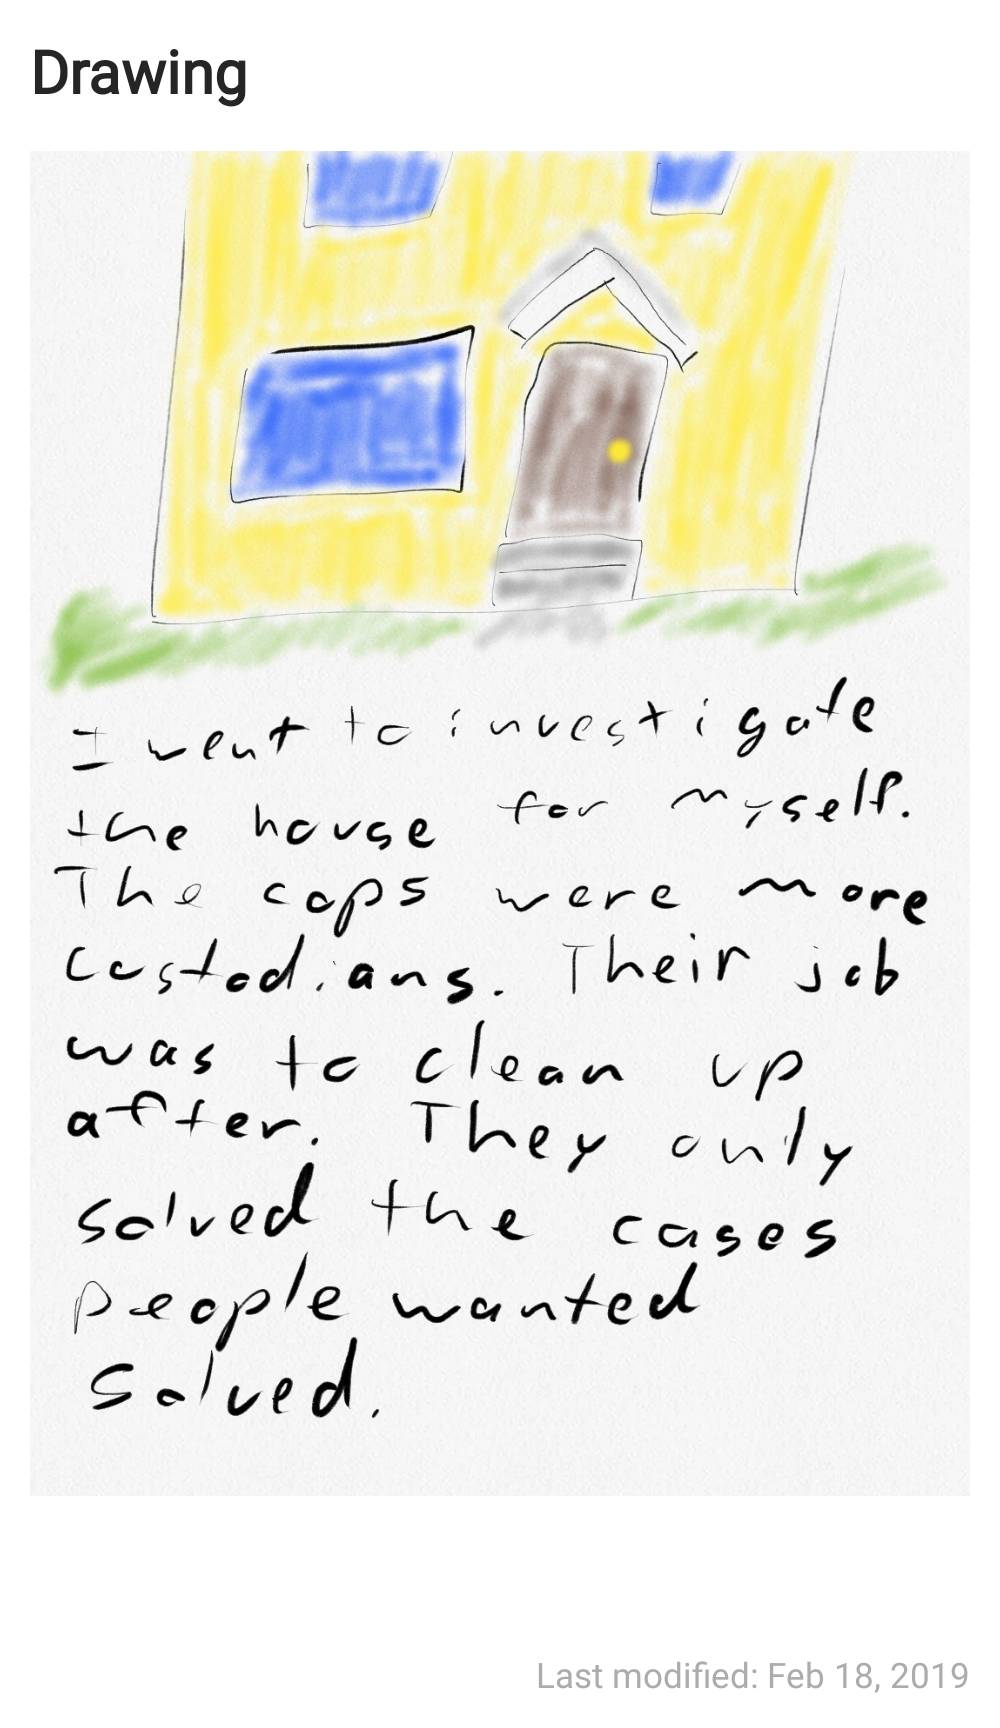 Drawing
I went to investigate
the house for myself.
The cops were more
custodians. Their job
was to clean up
after. They only
solved the cases
people wanted
solved.
Last modified: Feb 18, 2019